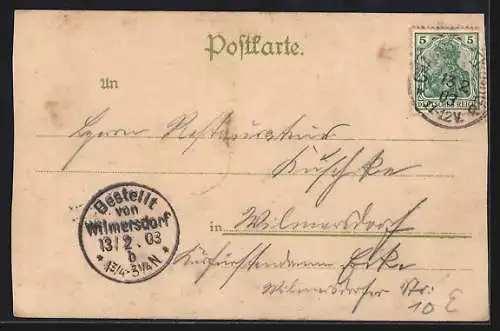 Postkarte.
5 5
DEUTSCHES REICH
13 2
03
11-12V.
An
Herrn Restaurateur
Kuschke
in Wilmersdorf
Kurfürstendamm Ecke
Wilmersdorfer Str:
10
Bestellt
von
Wilmersdorf
13/2. 03
b
* 1 3/4-3 1/4 N *